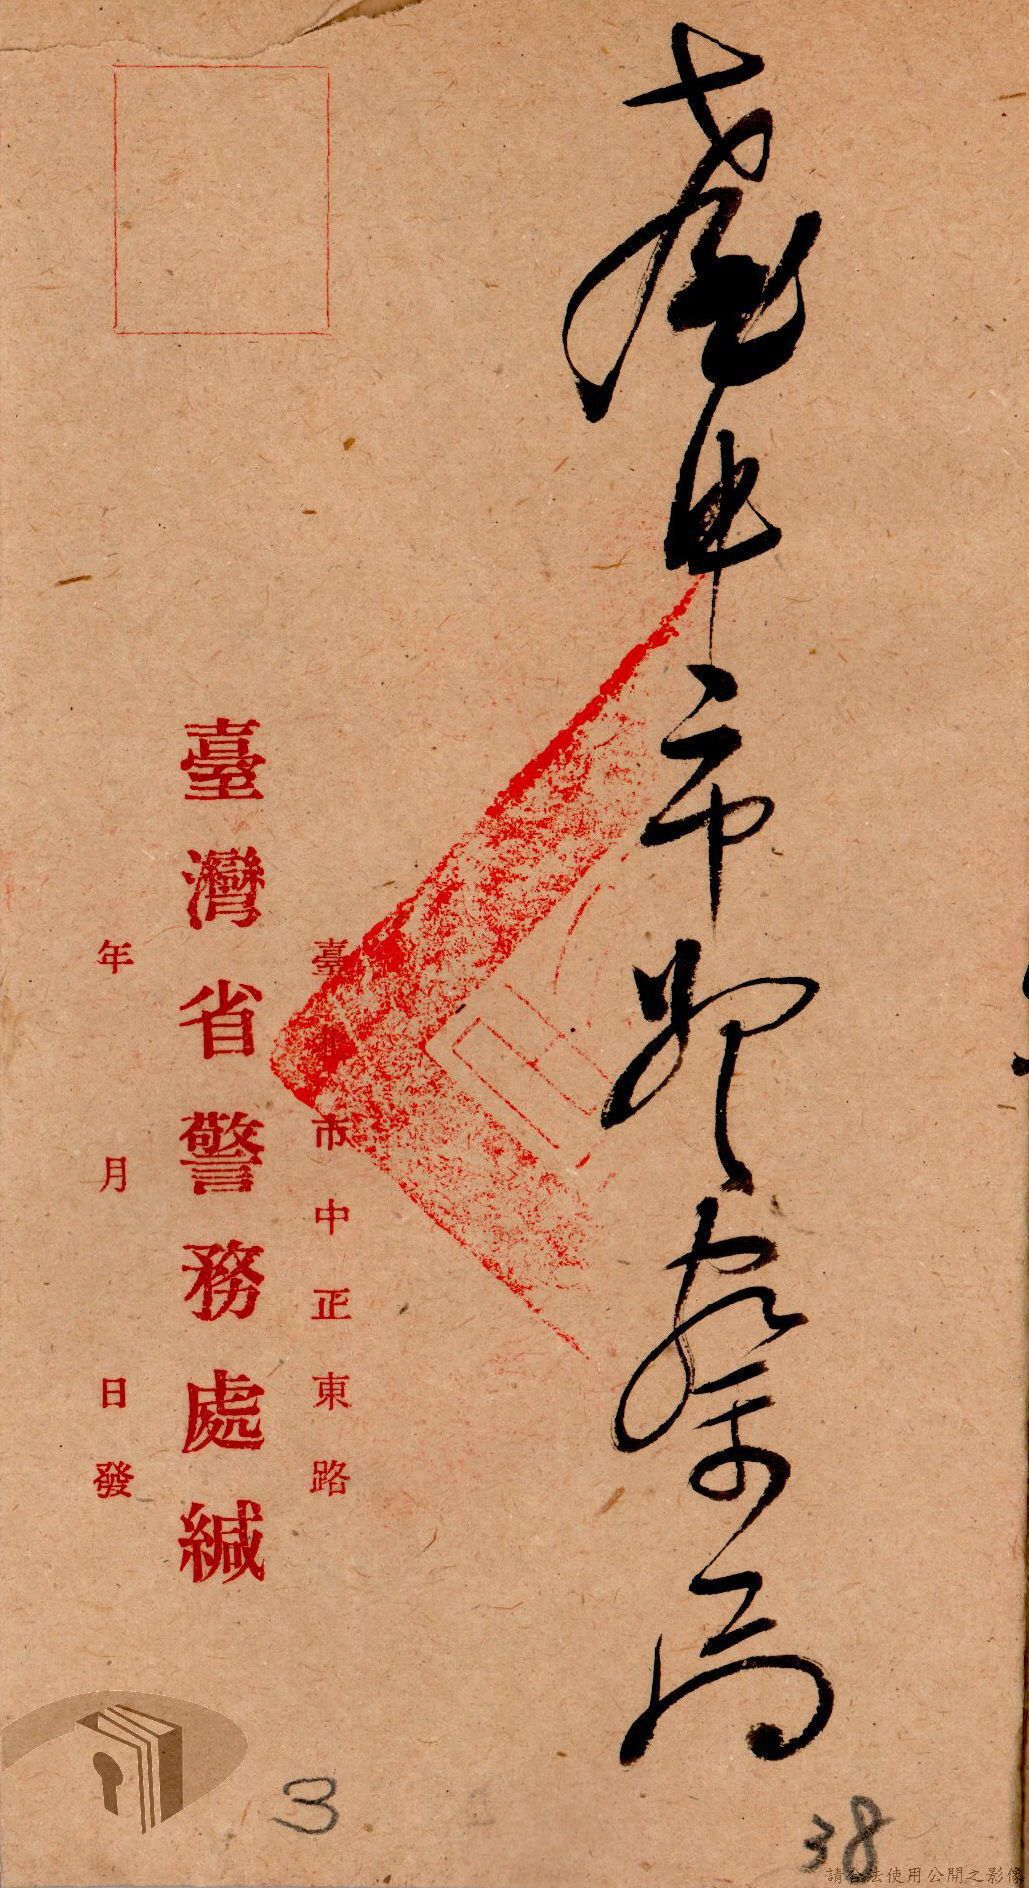 臺中市警察局
臺北市中正東路
臺灣省警務處緘
年 月 日發
3
38
請合法使用公開之影像